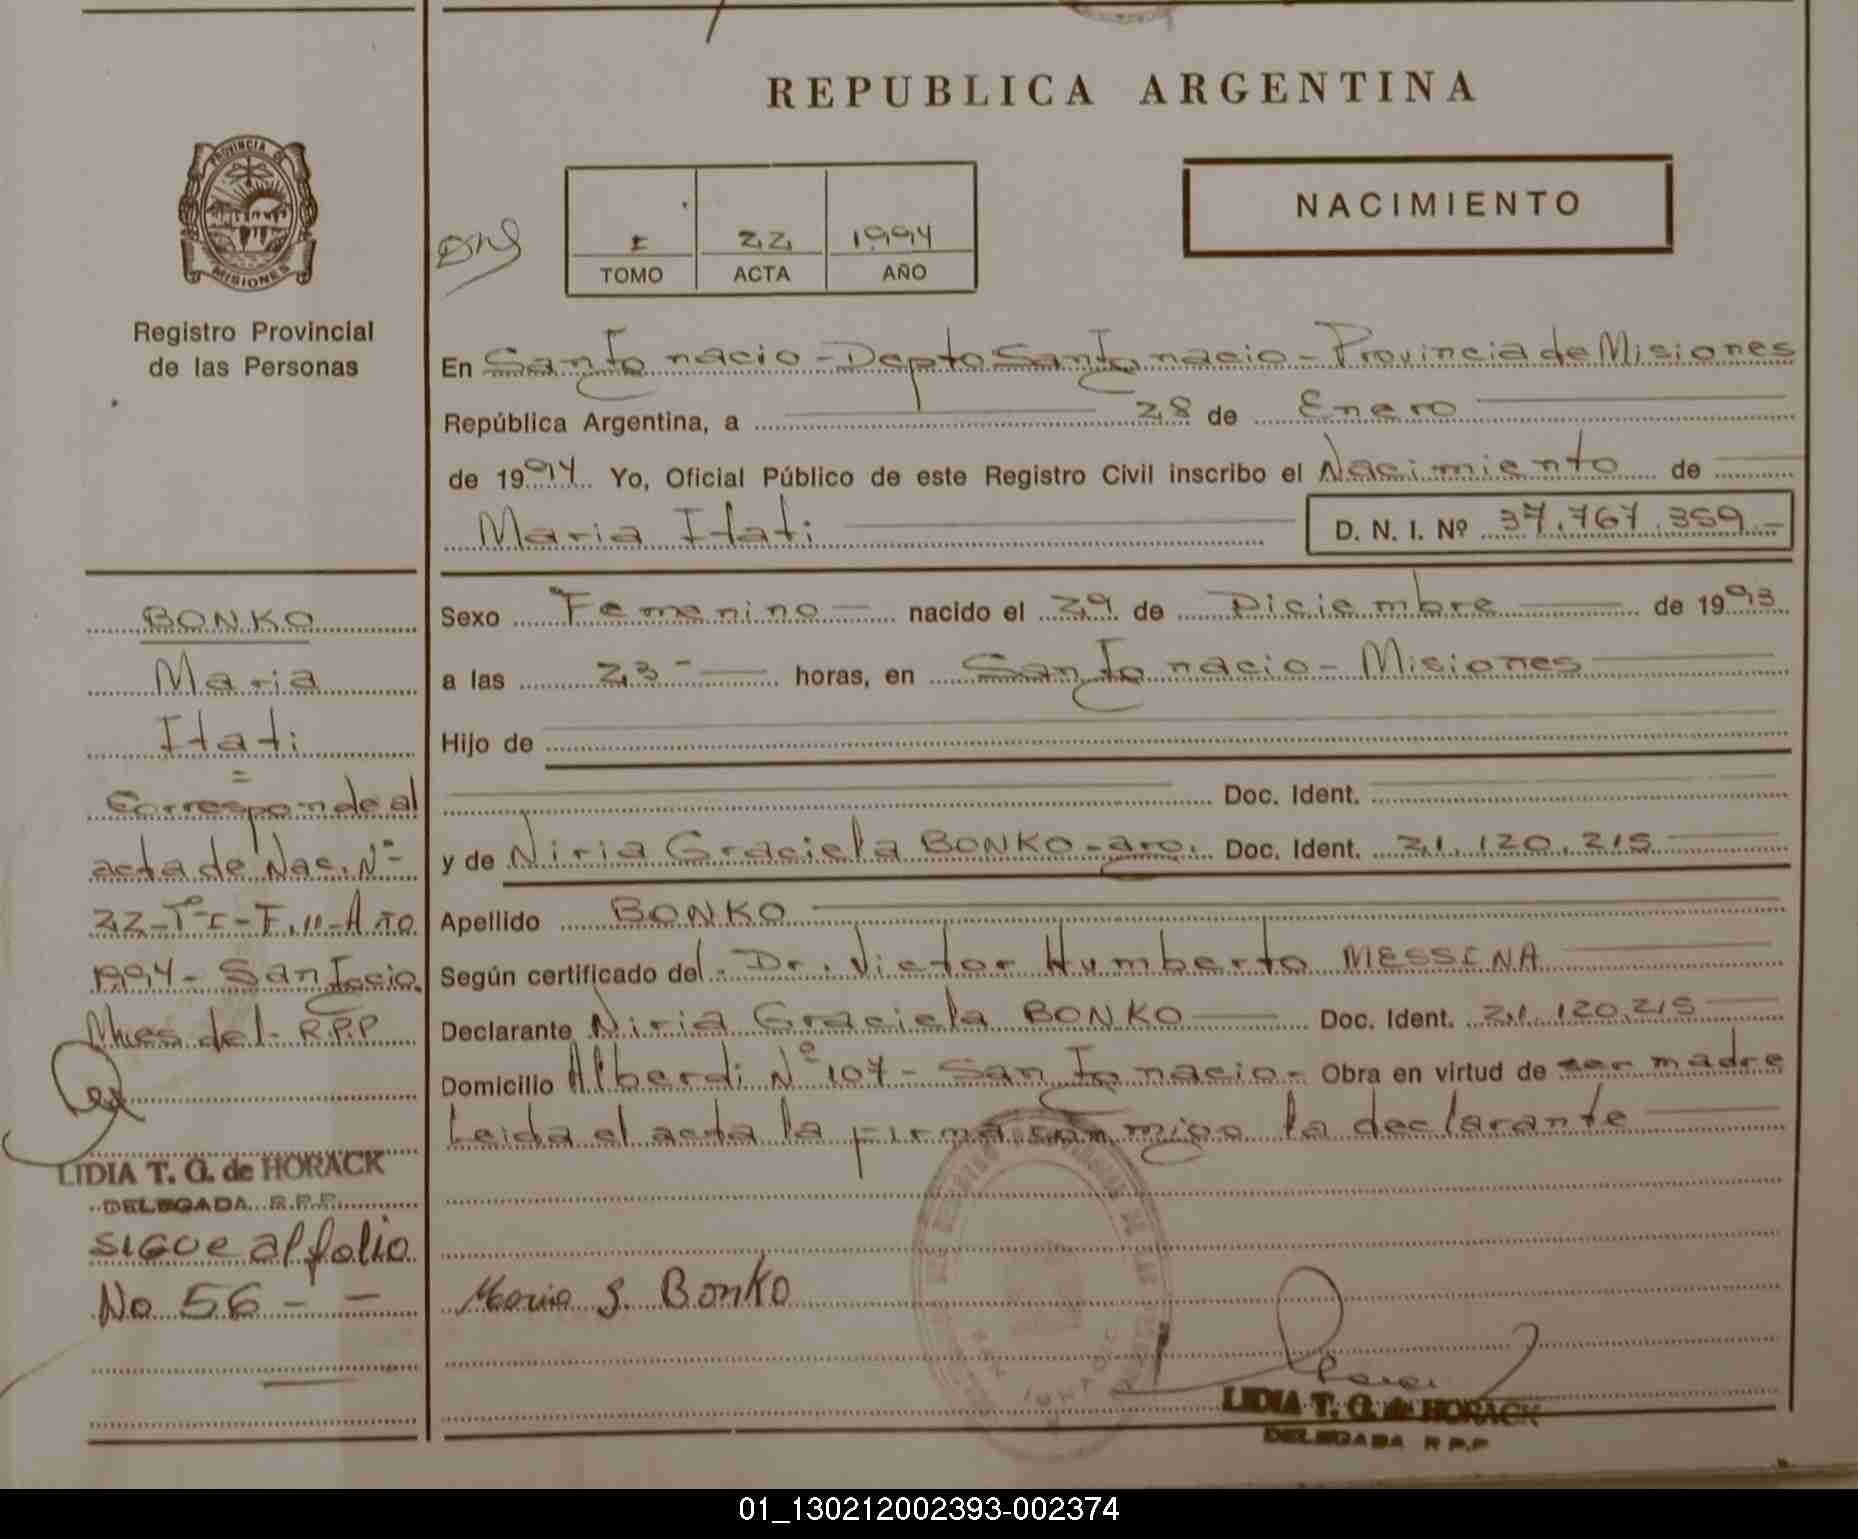 REPUBLICA ARGENTINA
PROVINCIA DE
MISIONES
Registro Provincial
de las Personas
I 22 1994
TOMO ACTA AÑO
NACIMIENTO
En San Ignacio - Depto San Ignacio - Provincia de Misiones
República Argentina, a 28 de Enero
de 1994 Yo, Oficial Público de este Registro Civil inscribo el Nacimiento de
Maria Itati D. N. I. Nº 37.767.359.-
Sexo Femenino nacido el 29 de Diciembre de 1993
a las 23 - horas, en San Ignacio - Misiones
Hijo de
Doc. Ident.
y de Niria Graciela BONKO - arg. Doc. Ident. 21.120.215
Apellido BONKO
Según certificado del Dr. Victor Humberto MESSINA
Declarante Niria Graciela BONKO Doc. Ident. 21.120.215
Domicilio Alberdi Nº 107 - San Ignacio - Obra en virtud de ser madre
Leida el acta la firma conmigo la declarante
BONKO
Maria
Itati
=
Corresponde al
acta de Nac. Nº
22 - Tº I - F. 11 - Año
1994 - San Igacio
Mnes del R.P.P
LIDIA T. G. de HORACK
DELEGADA R.P.P.
SIGUE al folio
No 56 - -
Bonko
LIDIA T. G. de HORACK
DELEGADA R P.P
01_130212002393-002374